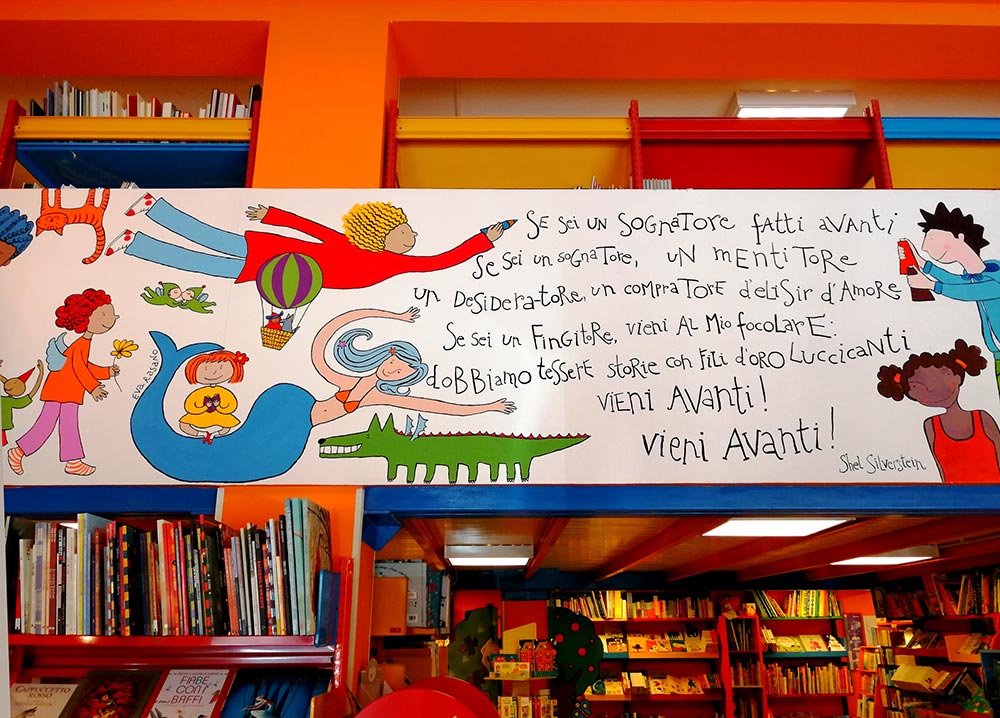 SE SEI UN SOGNATORE FATTI AVANTI
SE SEI UN SOGNATORE, UN MENTITORE
UN DESIDERATORE, UN COMPRATORE D'ELISIR D'AMORE
SE SEI UN FINGITRE, VIENI AL MIO FOCOLARE:
DOBBIAMO TESSERE STORIE CON FILI D'ORO LUCCICANTI
VIENI AVANTI!
VIENI AVANTI!
Shel Silverstein
EVA RASANO
CAPPUCCETTO ROSSO
FIABE CON I BAFFI